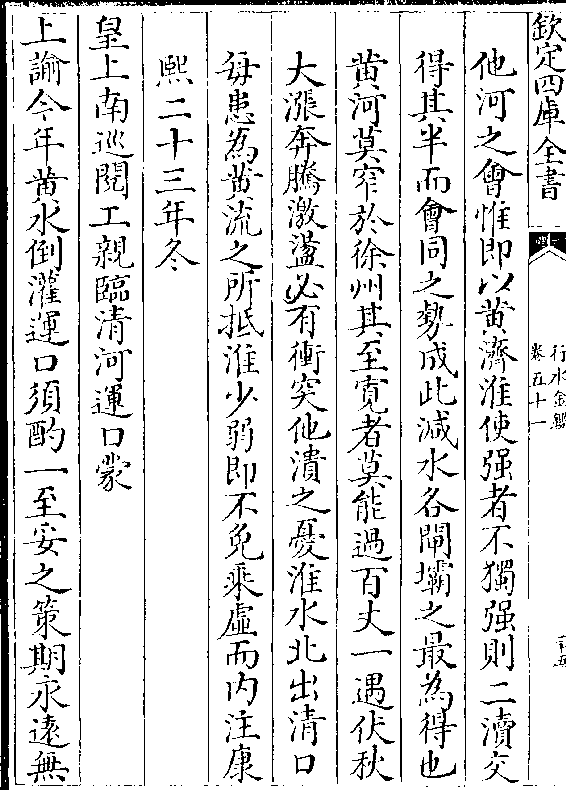 欽定四庫全書
行水金鑑
卷五十一
他河之會惟即以黄濟淮使强者不獨强則二瀆交
得其半而會同之勢成此減水各閘壩之最為得也
黄河莫窄於徐州其至寛者莫能過百丈一遇伏秋
大漲奔騰激盪必有衝突他潰之憂淮水北出清口
每患為黄流之所抵淮少弱即不免乘虛而内注康
熙二十三年冬
皇上南巡閱工親臨清河運口蒙
上諭今年黄水倒灌運口須酌一至妥之策期永遠無